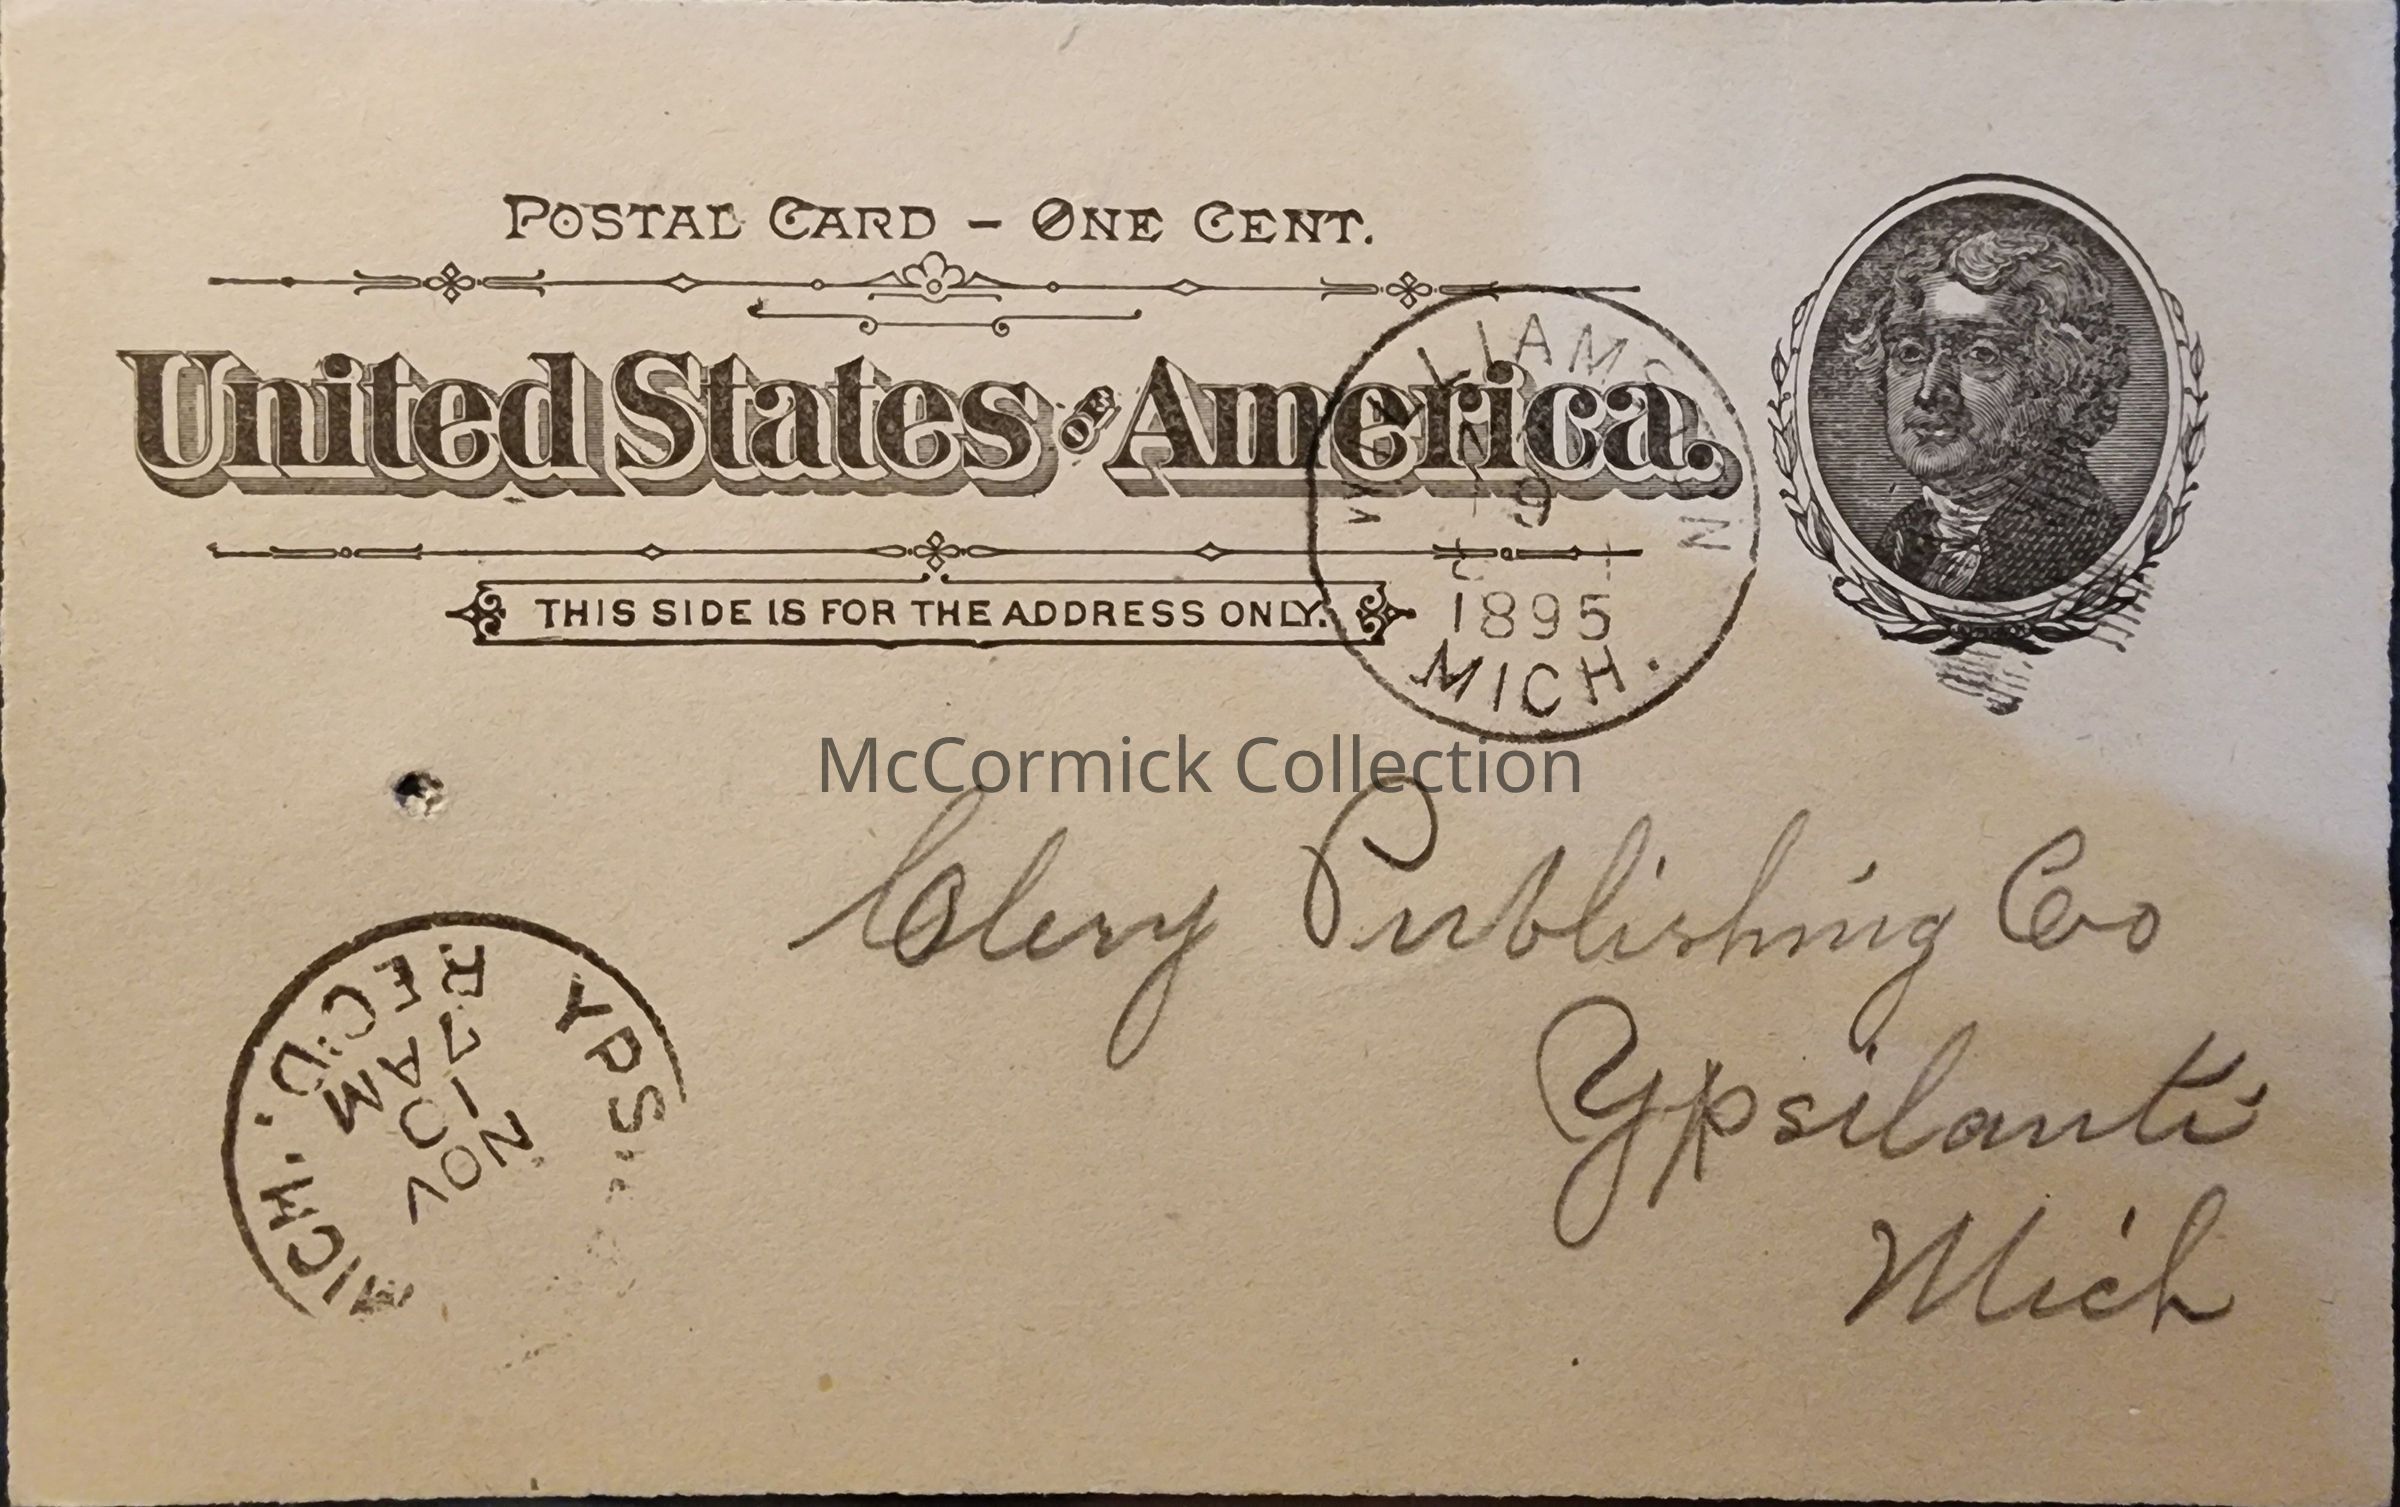 POSTAL CARD – ONE CENT.
United States OF America.
THIS SIDE IS FOR THE ADDRESS ONLY.
WILLIAMSTON
9
1895
MICH.
McCormick Collection
Publishing Co
Ypsilanti
Mich
YPSI
NOV
7 AM
REC'D.
MICH.